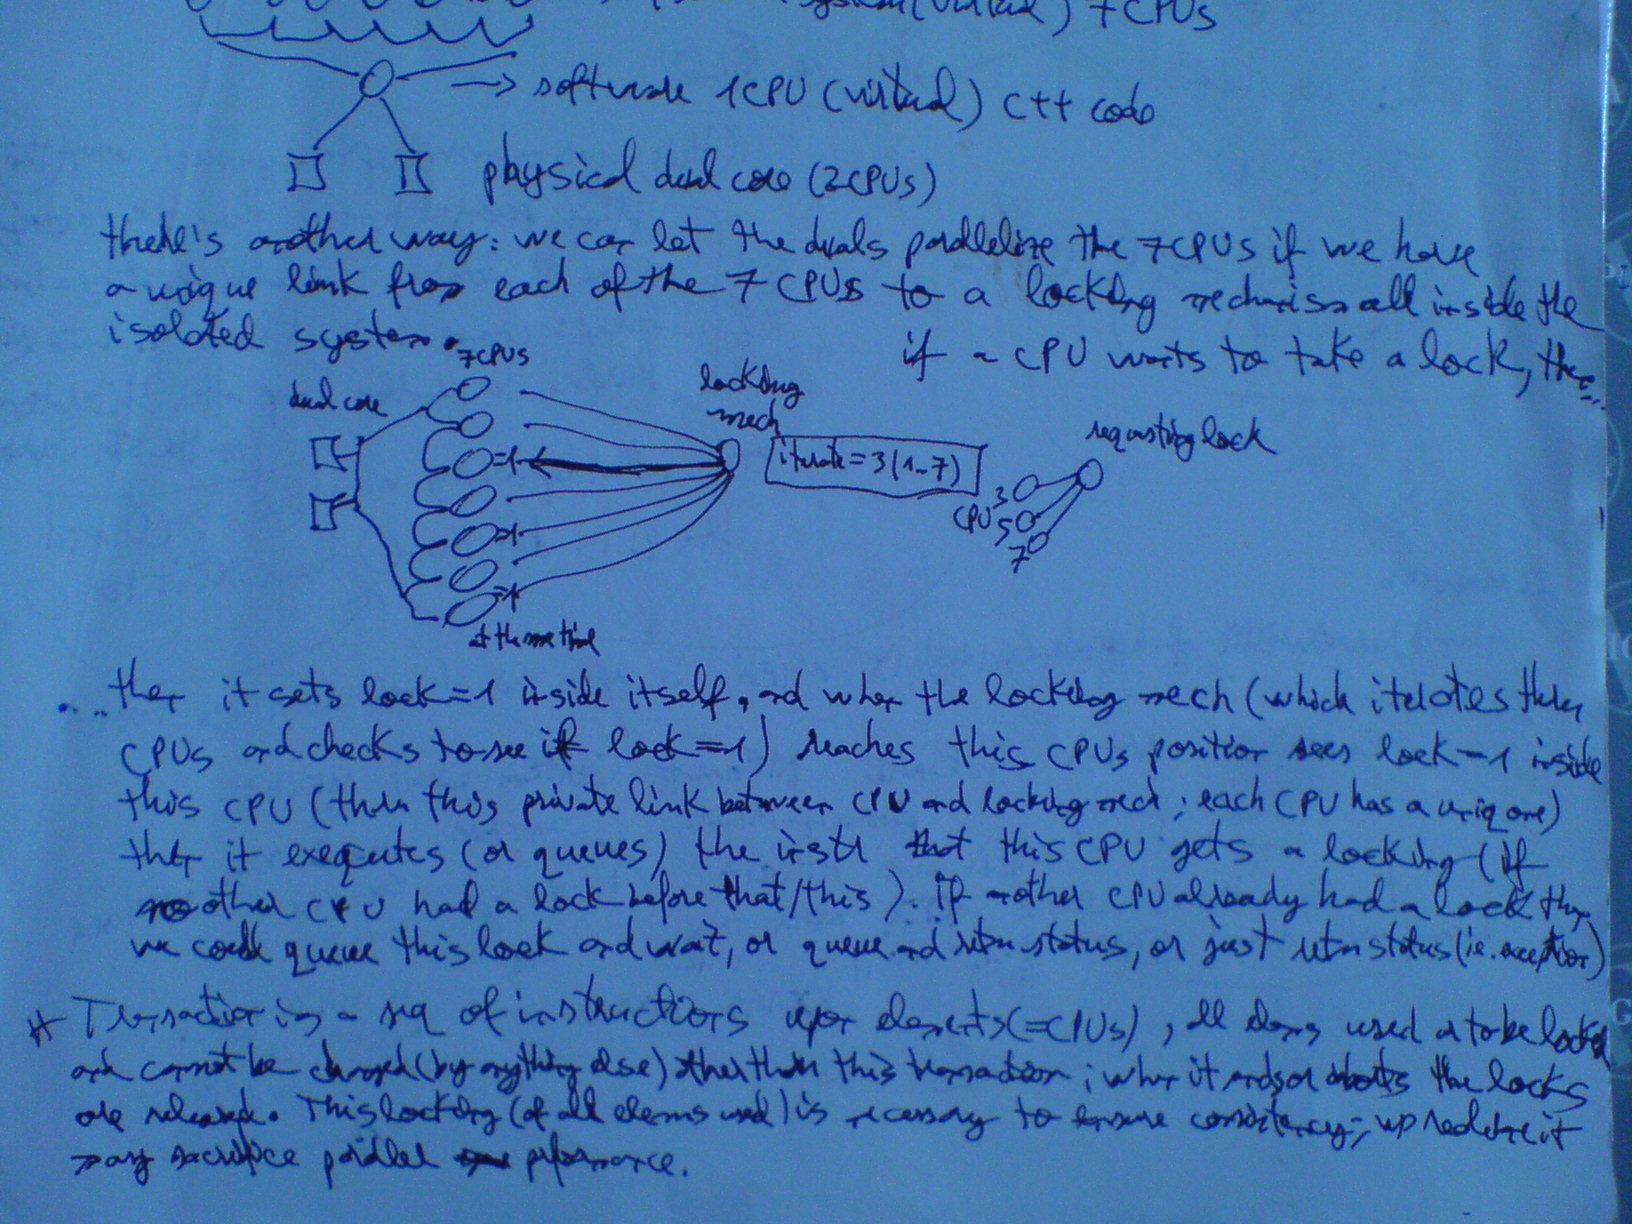 system (virtual) 7 CPUs
→ software 1 CPU (virtual) C++ code
physical dual core (2CPUs)
there's another way: we can let the duals parallelize the 7CPUs if we have
a unique link from each of the 7 CPUs to a locking mechanism all inside the
isolated system.
if a CPU wants to take a lock, then...
7CPUs
dual core
locking
mech
requesting lock
=1
iterate = 3 (1..7)
3
CPU 5
7
=1
=1
at the same time
... then it sets lock=1 inside itself, and when the locking mech (which iterates thru
CPUs and checks to see if lock==1) reaches this CPUs position sees lock=1 inside
this CPU (thru this private link between CPU and locking mech; each CPU has a uniq one)
then it executes (or queues) the instr that this CPU gets a locking (if
no other CPU had a lock before that/this). if another CPU already had a lock then
we could queue this lock and wait, or queue and return status, or just return status (ie. exception)
# Transaction is a seq of instructions upon elements (=CPUs), all elems used to be locked
and cannot be changed (by anything else) other than this transaction; when it ends or aborts the locks
are released. This locking (of all elems used) is necessary to ensure consistency; it
may sacrifice parallel performance.